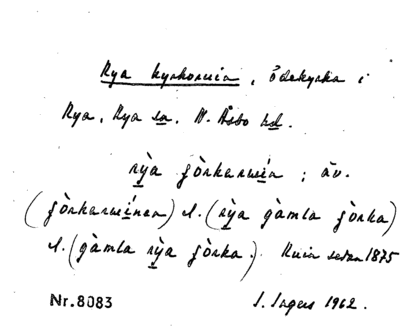 Rya kyrkoruin, ödekyrka i
Rya, Rya sn. N. Åsbo hd.
rỳa ʃòrkarwín ; äv.
(ʃòrkarwínen) l. (rỳa gàmla ʃòrka)
l. (gàmla rỳa ʃòrka.) Ruin sedan 1875
Nr. 8083 I. Ingers 1962.